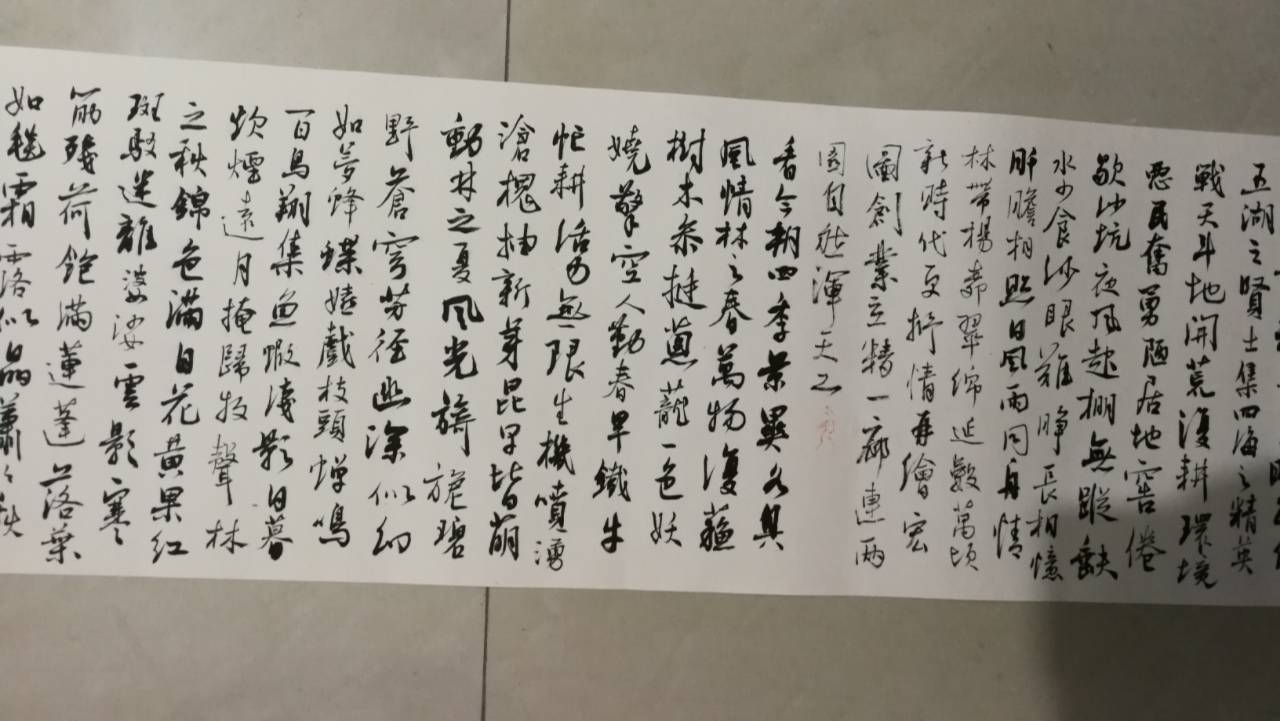 五湖之賢士集四海之精英
戰天斗地開荒復耕環境
惡民奮勇陋居地窖倦
歇沙坑夜風起棚無蹤缺
水少食沙眼難睜長相憶
肝膽相照日風雨同舟情
林帶楊靠翠綿延數萬頃
新時代更抒情再繪宏
圖創業立精一廊連兩
園自然渾天工
看今朝四季景異各具
風情林之春萬物復蘇
樹木參挺蔥蘢一色妖
嬈擎空人勤春早鐵牛
忙耕活力無限生機噴湧
滄槐抽新芽昆早皆萌
動林之夏風光旖旎碧
野蒼穹芳徑幽深似幻
如夢蜂蝶嬉戲枝頭蟬鳴
百鳥翔集魚蝦淺影日暮
炊煙遠月掩歸牧聲林
之秋錦色滿目花黃果紅
斑駁迷離婆娑雲影寒
筋殘荷飽滿蓮蓬落葉
如毯霜露似晶蕭之秋